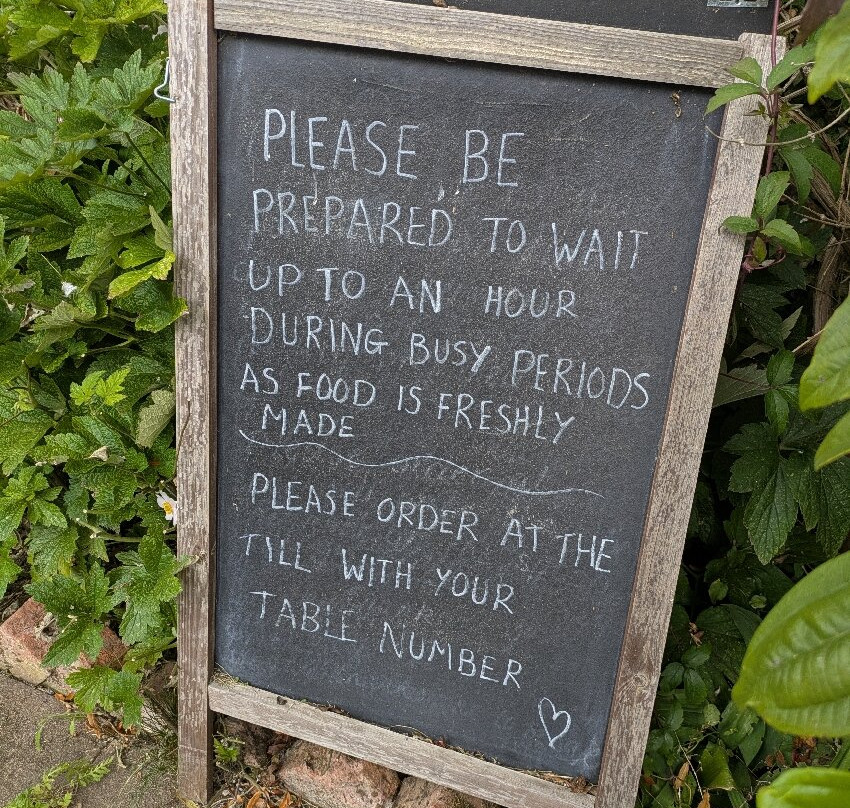 PLEASE BE
PREPARED TO WAIT
UP TO AN HOUR
DURING BUSY PERIODS
AS FOOD IS FRESHLY
MADE
PLEASE ORDER AT THE
TILL WITH YOUR
TABLE NUMBER